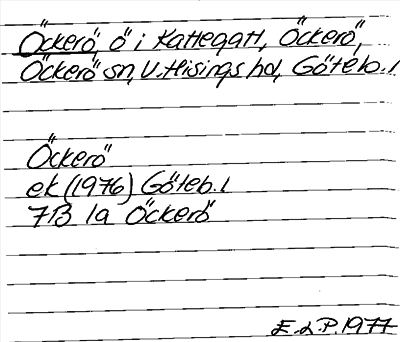 Öckerö, ö i Kattegatt, Öckerö,
Öckerö sn, V. Hisings hd, Göteb. l
Öckerö
ek (1976) Göteb. l
7B 1a Öckerö
E.L.P. 1977